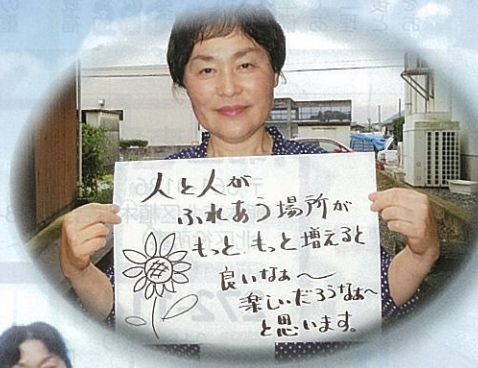 人と人が
ふれあう場所が
もっと もっと増えると
良いなぁ〜
楽しいだろうなぁ〜
と思います。